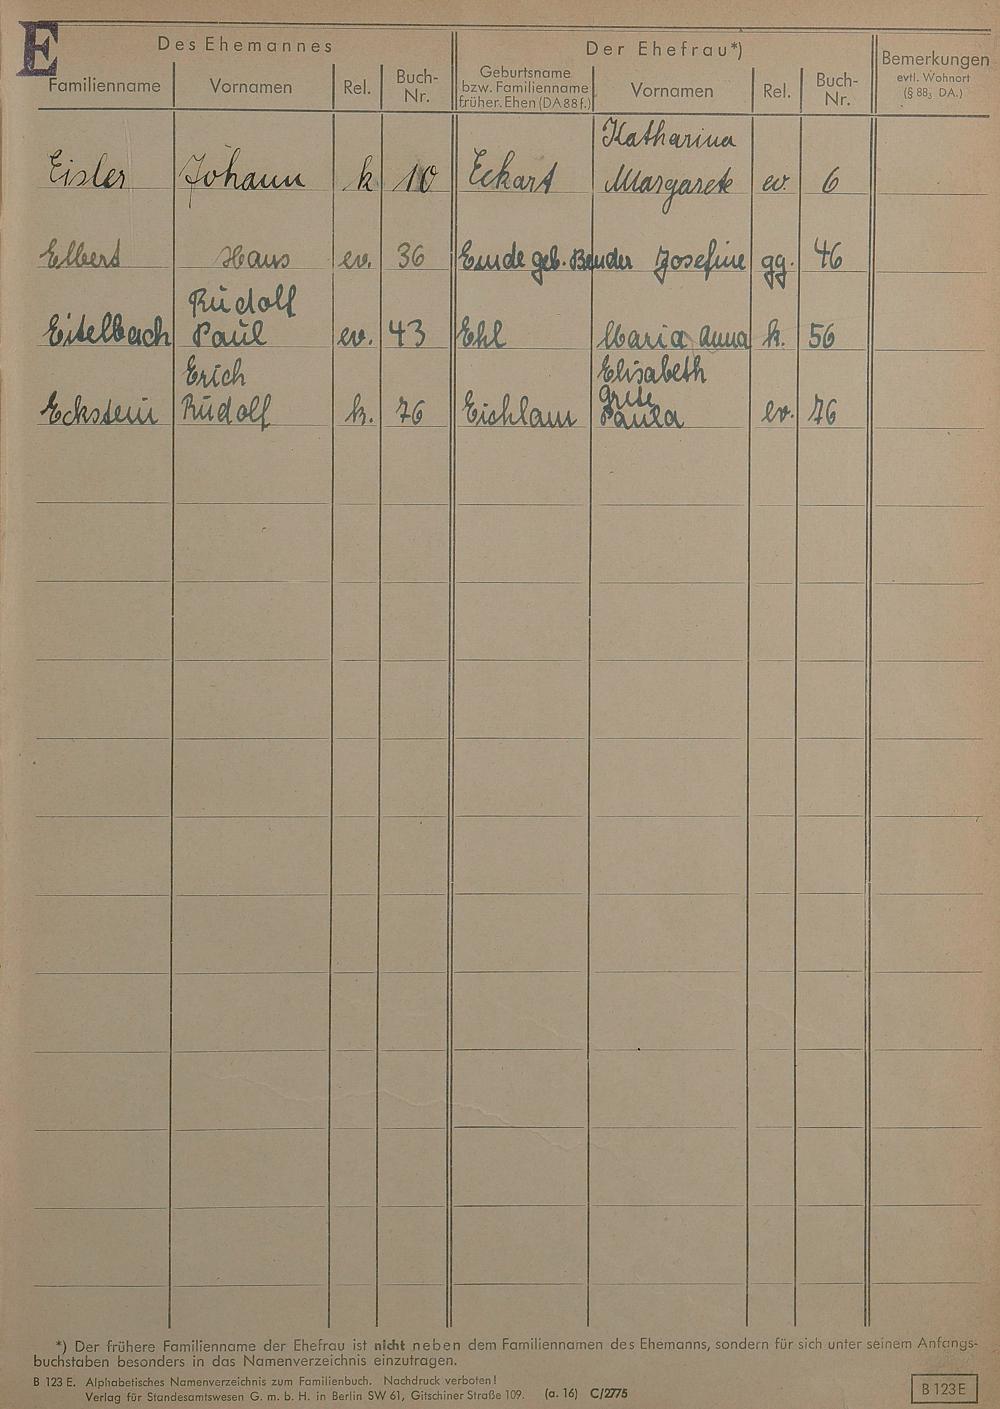 E
Des Ehemannes
Der Ehefrau*)
Bemerkungen
evtl. Wohnort
(§ 88₃ DA.)
Familienname
Vornamen
Rel.
Buch-
Nr.
Geburtsname
bzw. Familienname
früher. Ehen (DA 88 f.)
Vornamen
Rel.
Buch-
Nr.
Katharina
Eisler Johann k 10 Eckart Margarete ev. 6
Elbert Hans ev. 36 Emde geb. Bender Josefine gg. 46
Rudolf
Eitelbach Paul ev. 43 Ehl Maria Anna k. 56
Erich Elisabeth
Grete
Eckstein Rudolf k. 76 Eichlam Paula ev. 76
*) Der frühere Familienname der Ehefrau ist nicht neben dem Familiennamen des Ehemanns, sondern für sich unter seinem Anfangs-
buchstaben besonders in das Namenverzeichnis einzutragen.
B 123 E. Alphabetisches Namenverzeichnis zum Familienbuch. Nachdruck verboten!
Verlag für Standesamtswesen G. m. b. H. in Berlin SW 61, Gitschiner Straße 109. (a. 16) C/2775
B 123 E